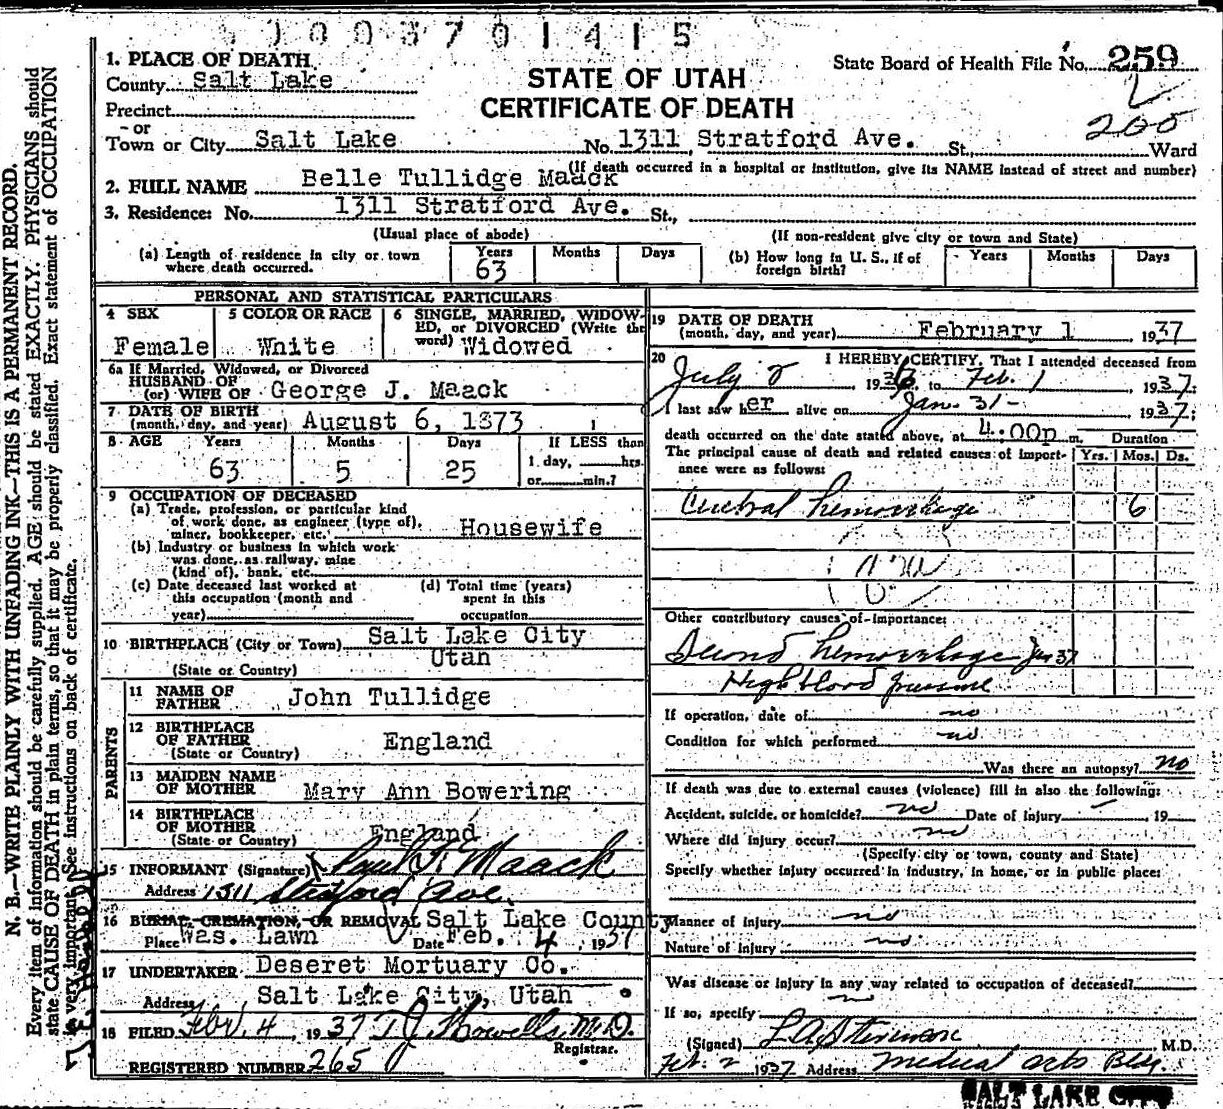 1003701415
State Board of Health File No. 259
1. PLACE OF DEATH
County Salt Lake
STATE OF UTAH
CERTIFICATE OF DEATH
Precinct
200
or
Town or City Salt Lake No. 1311 Stratford Ave. St., Ward
(If death occurred in a hospital or institution, give its NAME instead of street and number)
2. FULL NAME Belle Tullidge Maack
3. Residence: No. 1311 Stratford Ave. St.,
(Usual place of abode) (If non-resident give city or town and State)
(a) Length of residence in city or town where death occurred. Years 63 Months Days
(b) How long in U. S., if of foreign birth? Years Months Days
PERSONAL AND STATISTICAL PARTICULARS
4 SEX Female
5 COLOR OR RACE White
6 SINGLE, MARRIED, WIDOWED, or DIVORCED (Write the word) Widowed
6a If Married, Widowed, or Divorced
HUSBAND OF
(or) WIFE OF George J. Maack
7 DATE OF BIRTH
(month, day, and year) August 6, 1873
8 AGE Years 63 Months 5 Days 25 If LESS than 1 day, hrs. or min.?
9 OCCUPATION OF DECEASED
(a) Trade, profession, or particular kind
of work done, as engineer (type of),
miner, bookkeeper, etc. Housewife
(b) Industry or business in which work
was done, as railway, mine
(kind of), bank, etc.
(c) Date deceased last worked at
this occupation (month and
year)
(d) Total time (years)
spent in this
occupation
10 BIRTHPLACE (City or Town) Salt Lake City
(State or Country) Utah
PARENTS
11 NAME OF FATHER John Tullidge
12 BIRTHPLACE OF FATHER
(State or Country) England
13 MAIDEN NAME OF MOTHER Mary Ann Bowering
14 BIRTHPLACE OF MOTHER
(State or Country) England
15 INFORMANT (Signature) Paul F. Maack
Address 1311 Stratford Ave.
16 BURIAL, CREMATION, OR REMOVAL Salt Lake County
Place Was. Lawn Date Feb. 4, 1937
17 UNDERTAKER Deseret Mortuary Co.
Address Salt Lake City, Utah
18 FILED Feb. 4, 1937 T J Howells M.D.
Registrar.
REGISTERED NUMBER 265
19 DATE OF DEATH
(month, day, and year) February 1 1937
20 I HEREBY CERTIFY, That I attended deceased from
July 2 1936, to Feb. 1, 1937;
I last saw her alive on Jan. 31 - 1937;
death occurred on the date stated above, at 4:00p m. Duration
The principal cause of death and related causes of importance were as follows: Yrs. Mos. Ds.
Cerebral hemorrhage 6
Other contributory causes of importance:
Second hemorrhage Jan 37
High blood pressure
If operation, date of no
Condition for which performed no
Was there an autopsy? no
If death was due to external causes (violence) fill in also the following:
Accident, suicide, or homicide? no Date of injury 19
Where did injury occur? no
(Specify city or town, county and State)
Specify whether injury occurred in industry, in home, or in public place:
Manner of injury no
Nature of injury no
Was disease or injury in any way related to occupation of deceased?
no
If so, specify
(Signed) L A Stevenson M.D.
Feb. 2 1937 Address Medical Arts Bldg.
SALT LAKE CITY
N. B.—WRITE PLAINLY WITH UNFADING INK—THIS IS A PERMANENT RECORD.
Every item of information should be carefully supplied. AGE should be stated EXACTLY. PHYSICIANS should
state CAUSE OF DEATH in plain terms, so that it may be properly classified. Exact statement of OCCUPATION
is very important. See instructions on back of certificate.